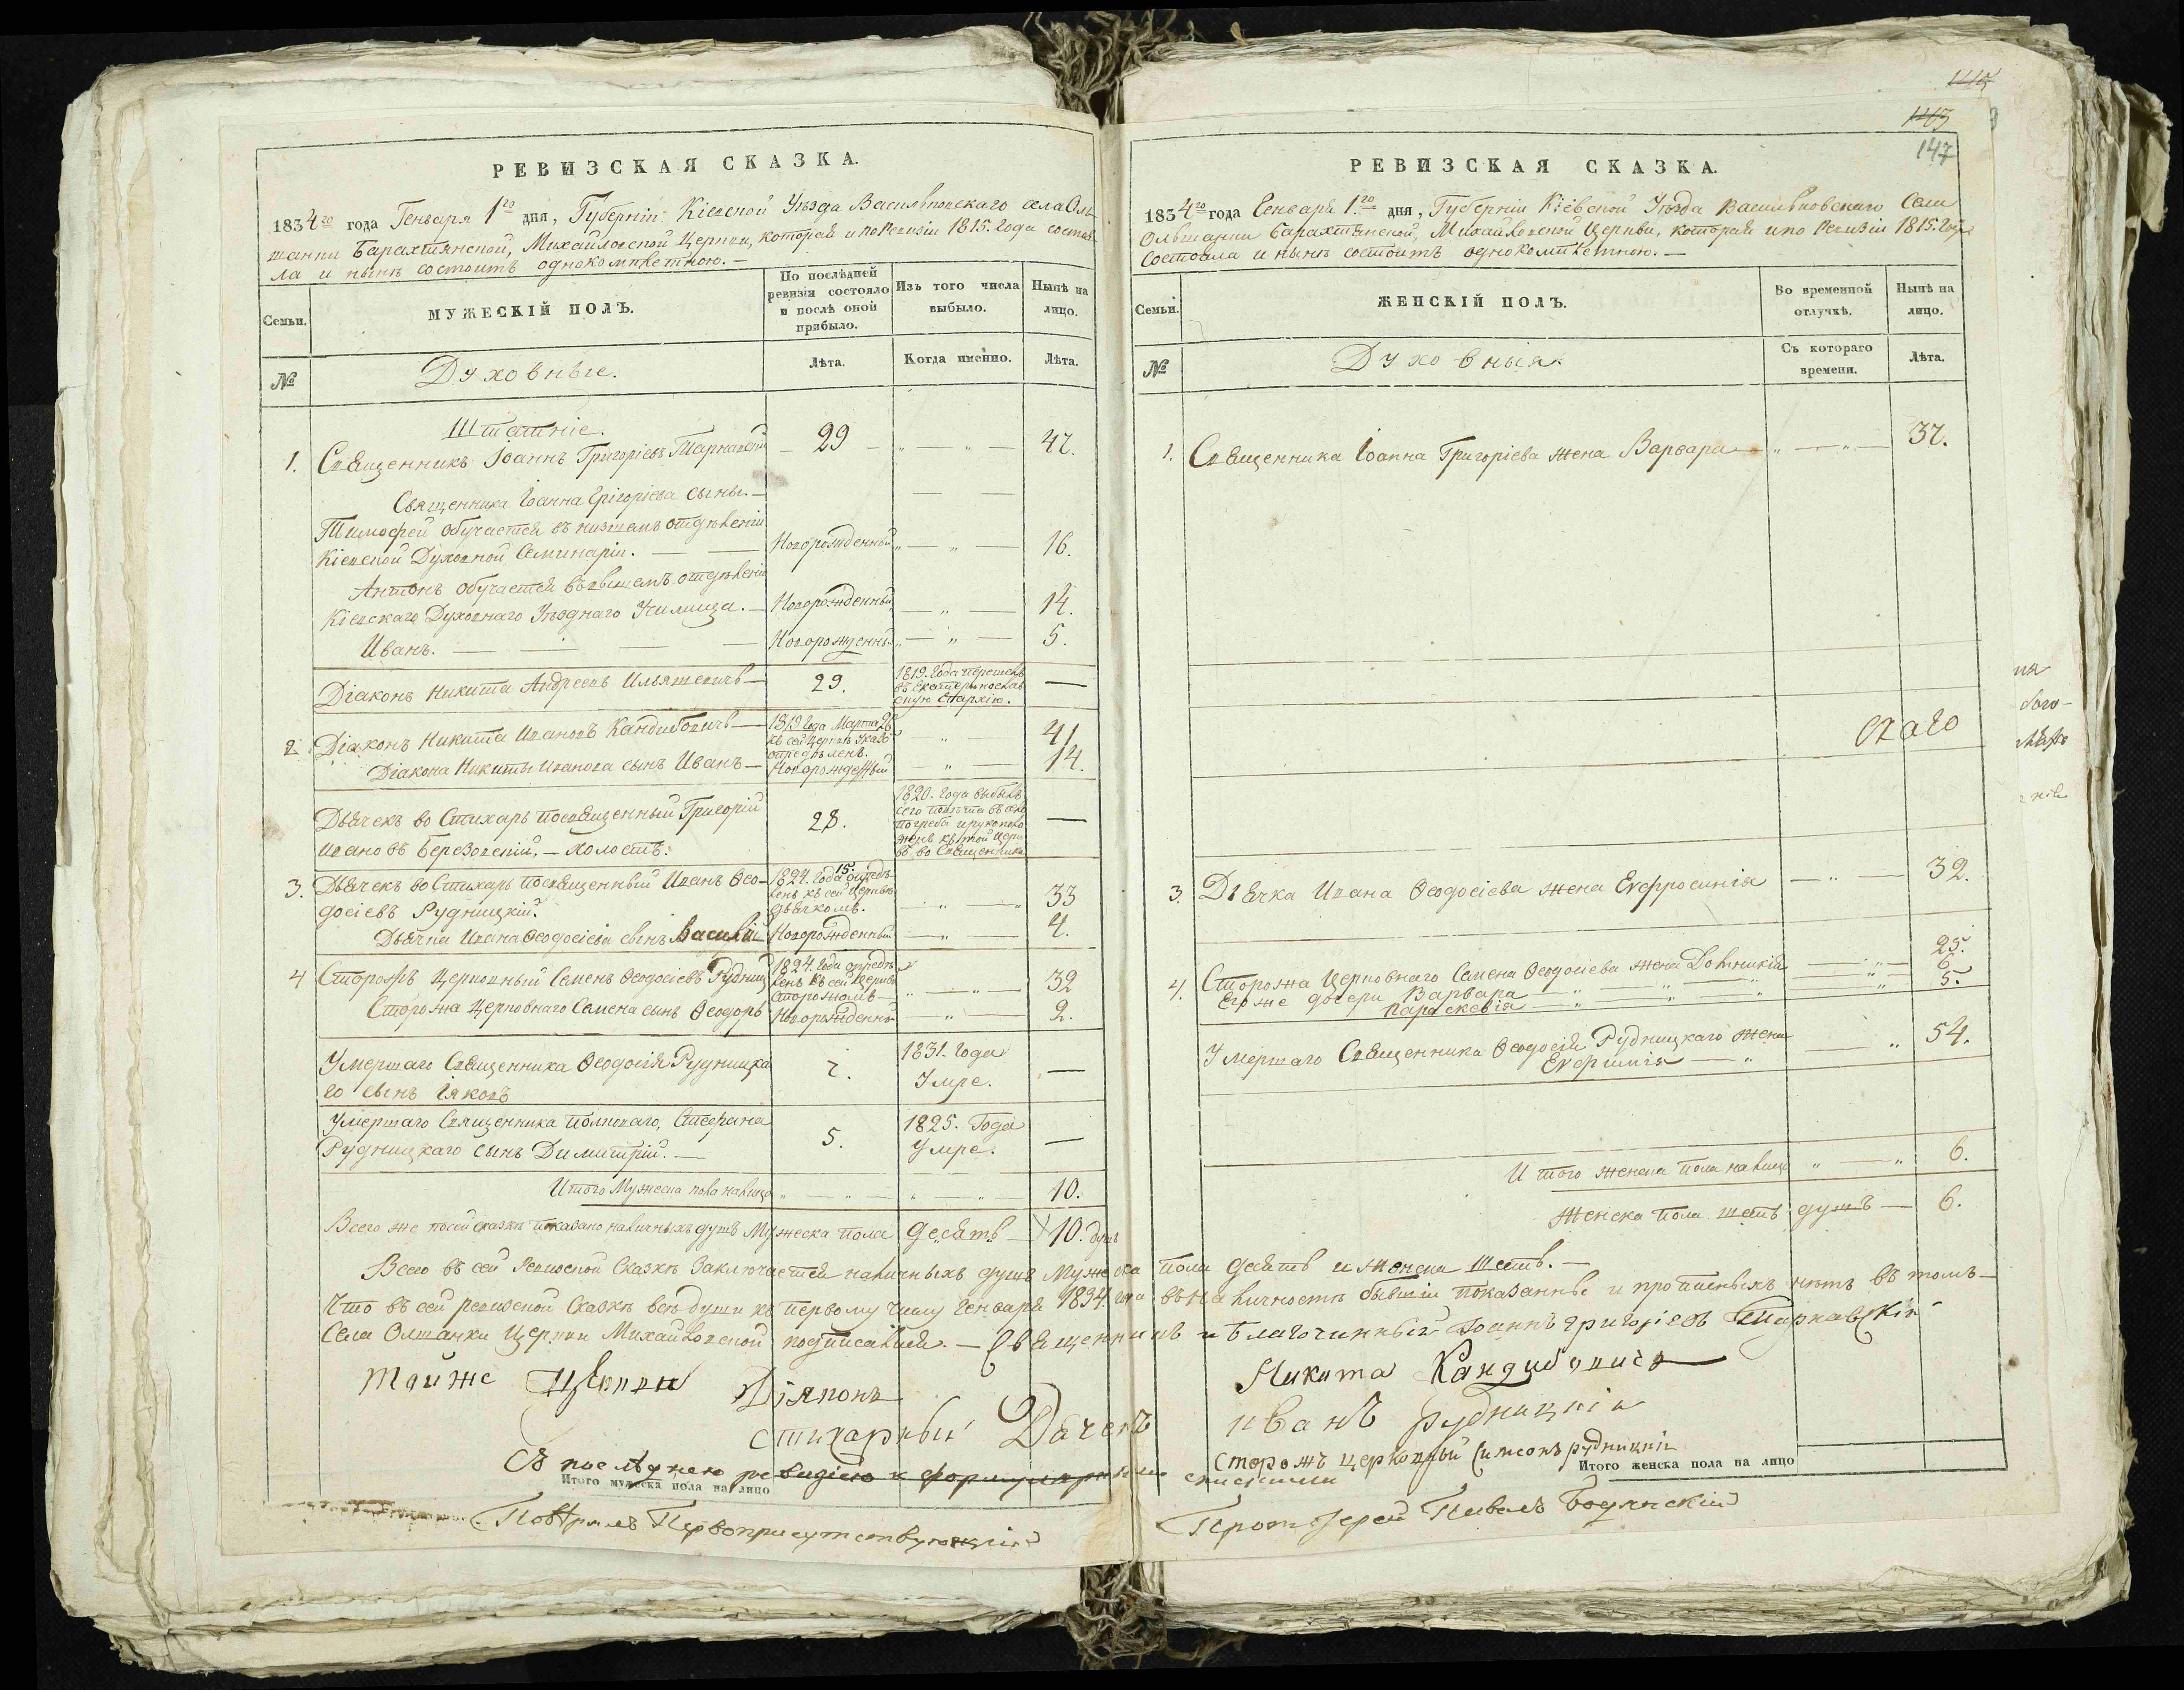 РЕВИЗСКАЯ СКАЗКА.
1834го года Генваря 1го дня, Губерніи Кіевской Уѣзда Васильковскаго села Оль-
шанки Барахтянской, Михайловской Церкви, которая и по Ревизіи 1815. Года состоя
ла и нынѣ состоитъ однокомплетною. —
Семьи.
МУЖЕСКІЙ ПОЛЪ.
По послѣдней ревизіи состояло и послѣ оной прибыло.
Изъ того числа выбыло.
Нынѣ на лицо.
№
Духовные.
Лѣта.
Когда именно.
Лѣта.
Штатніе.
1. Священникъ Іоаннъ Григоріевъ Тарнавскій — 29 — „ — „ — 47.
Священника Іоанна Григоріева сыны. —
Тимофей обучается въ низшемъ отдѣленіи
Кіевской Духовной Семинаріи. — Новорожденный „ — „ — 16.
Антонъ обучается въ высшемъ отдѣленіи
Кіевскаго Духовнаго Уѣзднаго Училища. — Новорожденный — „ — 14.
Иванъ. — Новорожденный „ — „ — 5.
Діаконъ Никита Андреевъ Ильяшевичъ — 29. 1819. Года перешелъ въ Екатеринослав скую Епархію. —
2. Діаконъ Никита Ивановъ Кандибовичъ — 1819 Года Марта 26 къ сей Церквѣ указо опредѣленъ. „ 41
Діакона Никиты Иванова сынъ Иванъ — Новорожденный „ — 14.
Дьячекъ во Стихарь посвященный Григорій
Ивановъ Березовскій, — холостъ. 28. 1820. Года выбылъ сего повѣта въ село Погребы и рукополо женъ къ той Церк вѣ во Священника —
3. Дьячекъ во Стихарь посвященный Иванъ Ѳео-
досіевъ Рудницкій. 1824. Года 15 опредѣ ленъ къ сей Церквѣ дьячкомъ. — „ — 33
Дьячка Ивана Ѳеодосіева сынъ Василій Новорожденный — „ — 4.
4 Сторожъ Церковный Семенъ Ѳеодосіевъ Рудниц 1824. Года опредѣ ленъ къ сей Церквѣ Сторожомъ — „ — „ — 32
Сторожа Церковнаго Семена сынъ Ѳеодоръ Новорожденный — „ — 2.
Умершаго Священника Ѳеодосія Рудницка
го сынъ Іяковъ 7. 1831. Года Умре. —
Умершаго Священника Полкаго, Стефана
Рудницкаго сынъ Димитрій. — 5. 1825. Года Умре. —
Итого Мужеска пола налицо „ — „ — „ — „ — 10.
Всего же по сей сказкѣ показано наличныхъ душъ Мужеска пола десять — 10. душ
РЕВИЗСКАЯ СКАЗКА.
1145
1143
147
1834го года Генваря 1го дня, Губерніи Кіевской Уѣзда Васильковскаго Села
Ольшанки Барахтянской, Михайловской Церкви, которая и по Ревизіи 1815. Года
состояла и нынѣ состоитъ однокомплетною. —
Семьи.
ЖЕНСКІЙ ПОЛЪ.
Во временной отлучкѣ.
Нынѣ на лицо.
№
Духовныя.
Съ котораго времени.
Лѣта.
1. Священника Іоанна Григоріева жена Варвара „ — „ — 37.
3. Дьячка Ивана Ѳеодосіева жена Евфросинія — „ — 32.
4. Сторожа Церковнаго Семена Ѳеодосіева жена Домникія — „ — 25.
Его же дочери Варвара — „ — 6
Параскевія — „ — 5.
Умершаго Священника Ѳеодосія Рудницкаго жена
Евфимія — „ 54.
Итого женска пола налицо „ — „ 6.
Женска пола шесть душъ — 6.
Всего въ сей Ревизской Сказкѣ заключается наличныхъ душъ Мужеска пола десять и женска шесть. —
Что въ сей ревизской Сказкѣ всѣ души къ первому числу Генваря 1834. года въ наличности бывшіи показанные и прописныхъ нѣтъ въ томъ —
Села Олшанки Церкви Михайловской подписался. — Священникъ и благочинный Іоаннъ Григоріевъ Тарнавскій
Тойже Церкви Діяконъ Никита Кандибовичъ
стихарный Дячекъ иванъ рудницкій
Сторожъ церковный Симеонъ рудницкій
Съ последнею ревизіею и формулярными списками
Итого мужеска пола на лицо
Итого женска пола на лицо
Повѣрялъ Первоприсутствующій Протоіерей Павелъ Бодянскій